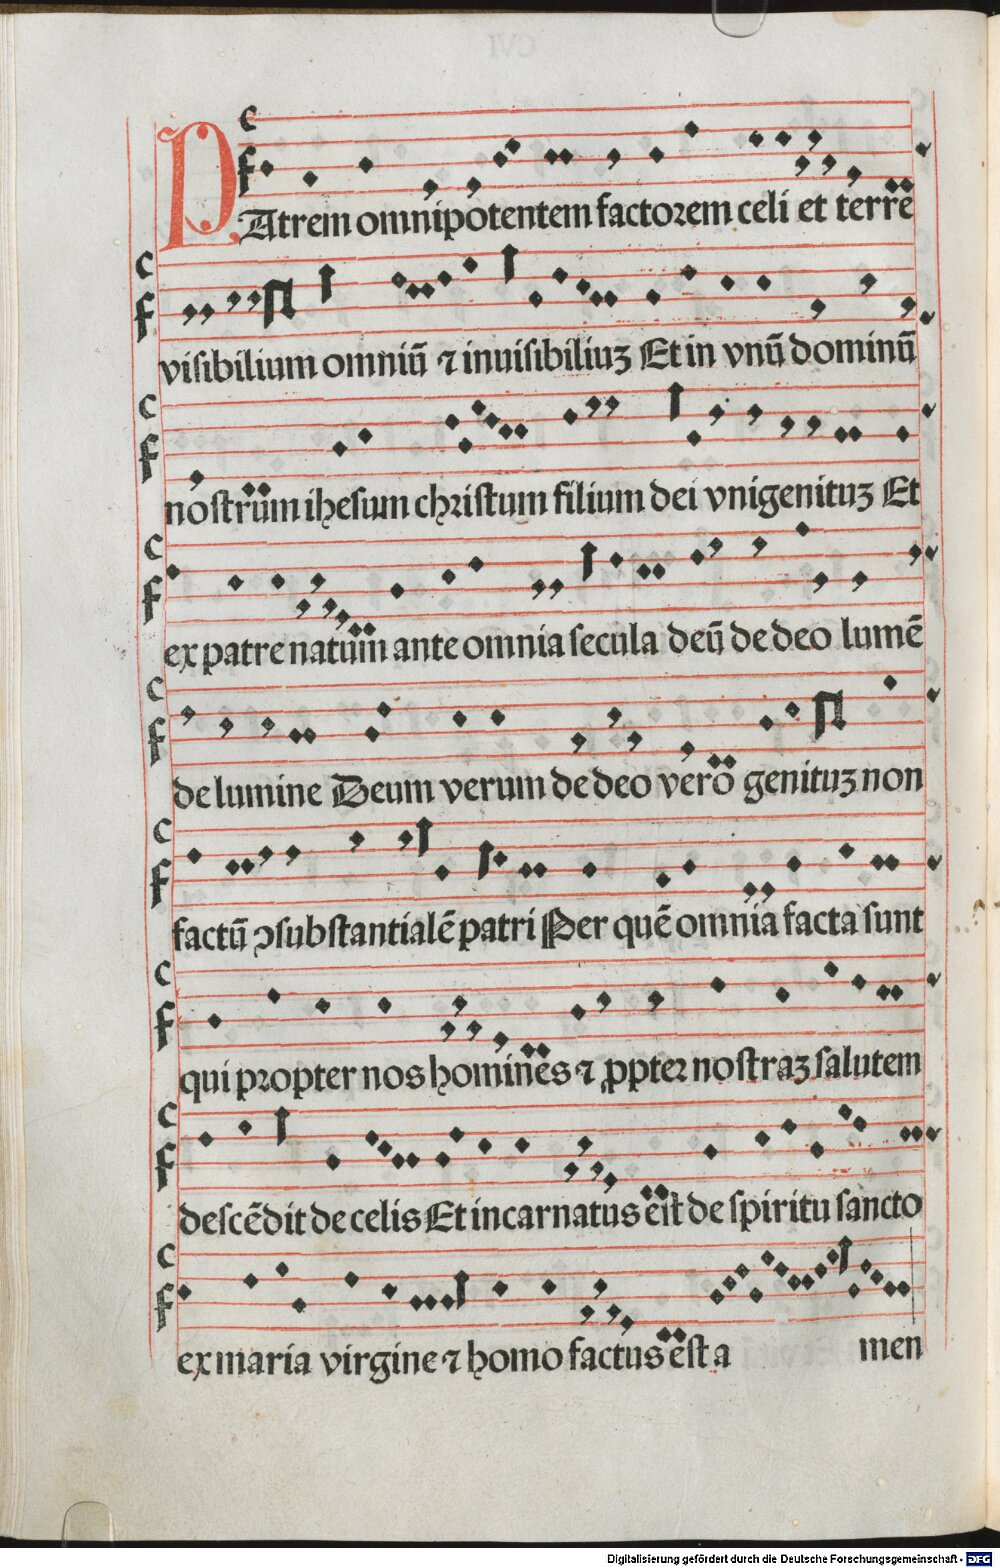 PAtrem omnipotentem factorem celi et terre
visibilium omniū ⁊ inuisibiliuꝫ Et in vnū dominū
nostrum ihesum christum filium dei vnigenituꝫ Et
ex patre natum ante omnia secula deū de deo lumē
de lumine Deum verum de deo vero genituꝫ non
factū ꝯsubstantialē patri Per quē omnia facta sunt
qui propter nos homines ⁊ ꝓpter nostraꝫ salutem
descēdit de celis Et incarnatus est de spiritu sancto
ex maria virgine ⁊ homo factus est a men
Digitalisierung gefördert durch die Deutsche Forschungsgemeinschaft - DFG